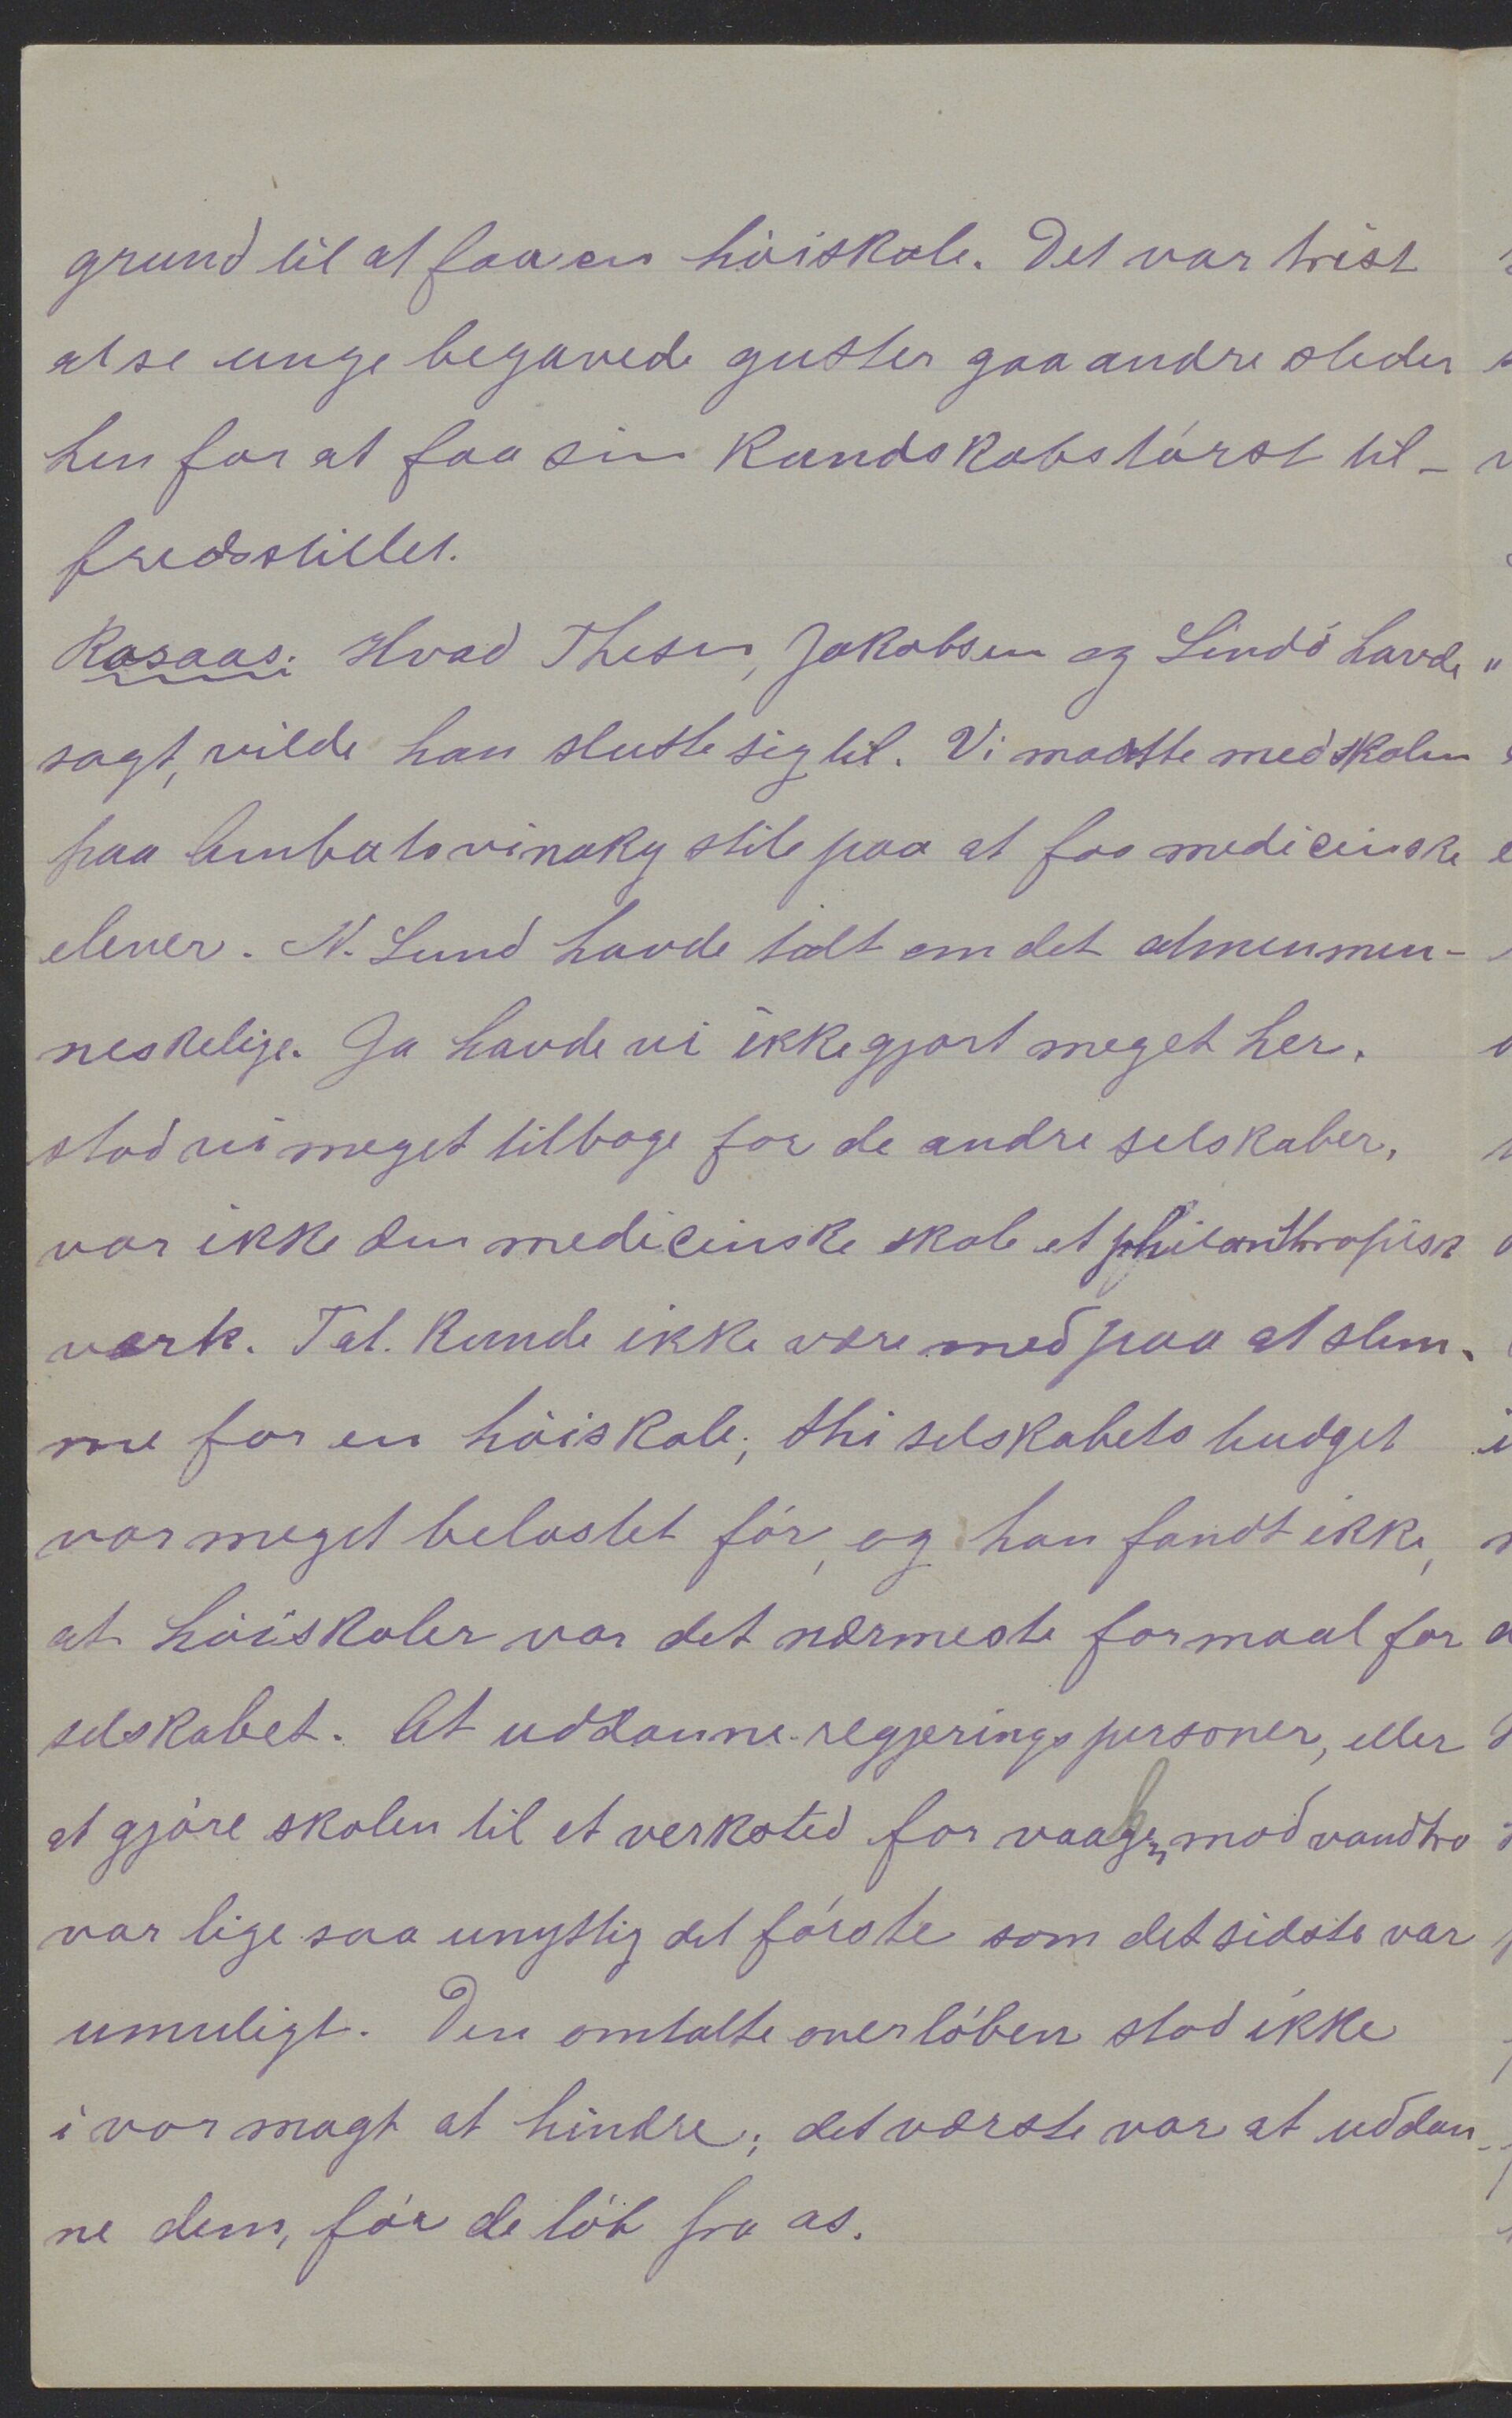 grund til at faa en höiskole. Det var trist
at se unge begavede gutter gaa andre steder
hen for at faa sin kundskabstörst til-
fredsstillet.
Rosaas: Hvad Thesen, Jakobsen og Lindö havde
sagt, vilde han slutte sig til. Vi maatte med skolen
paa Ambatovinaky stile paa at faa medicinske
elever. N. Lund havde talt om det almenmen-
neskelige. Ja havde vi ikke gjort meget her.
stod vi meget tilbage for de andre selskaber,
var ikke den medicinske skole et philanthropisk
værk. Tal. kunde ikke være med paa at stem-
me for en höiskole; thi selskabets budget
var meget belastet för, og han fandt ikke,
at höiskoler var det nærmeste formaal for
selskabet. At uddanne regjeringspersoner, eller
at gjöre skolen til et verksted for vaaben mod vandtro
var lige saa unyttig det förste som det sidste var
umuligt. Den omtalte overlöben stod ikke
i vor magt at hindre; det værste var at uddan-
ne dem, för de löb fra os.